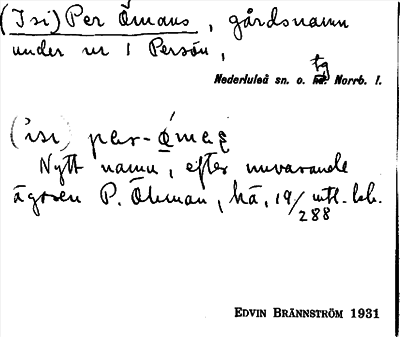 (Isi) Per Ömans, gårdsnamn
under nr 1 Persön,
tg
Nederluleå sn. o. hd. Norrb. l.
('isi) per-
Nytt namn, efter nuvarande
ägaren P. Öhman, hä, 19/288
EDVIN BRÄNNSTRÖM 1931